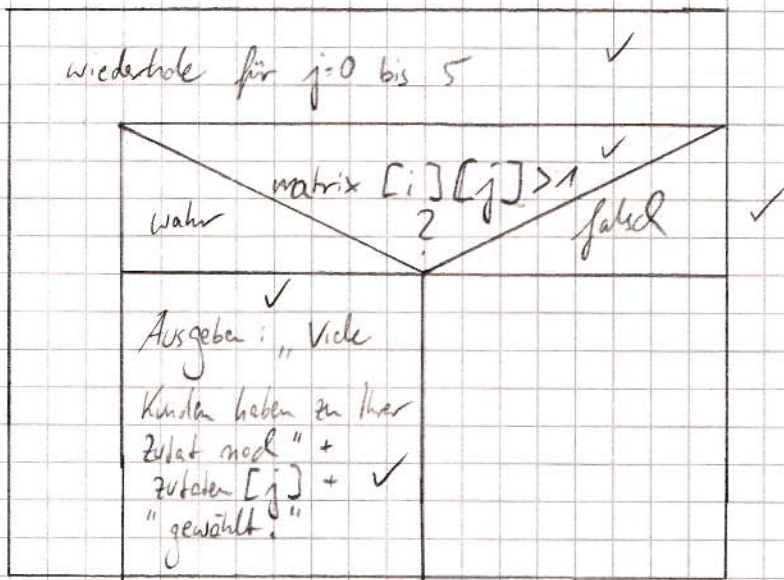 wiederhole für j=0 bis 5
matrix [i][j]>1
?
wahr
falsch
Ausgeben: „Viele
Kunden haben zu Ihrer
Zutat noch " +
zutaten [j] +
" gewählt."